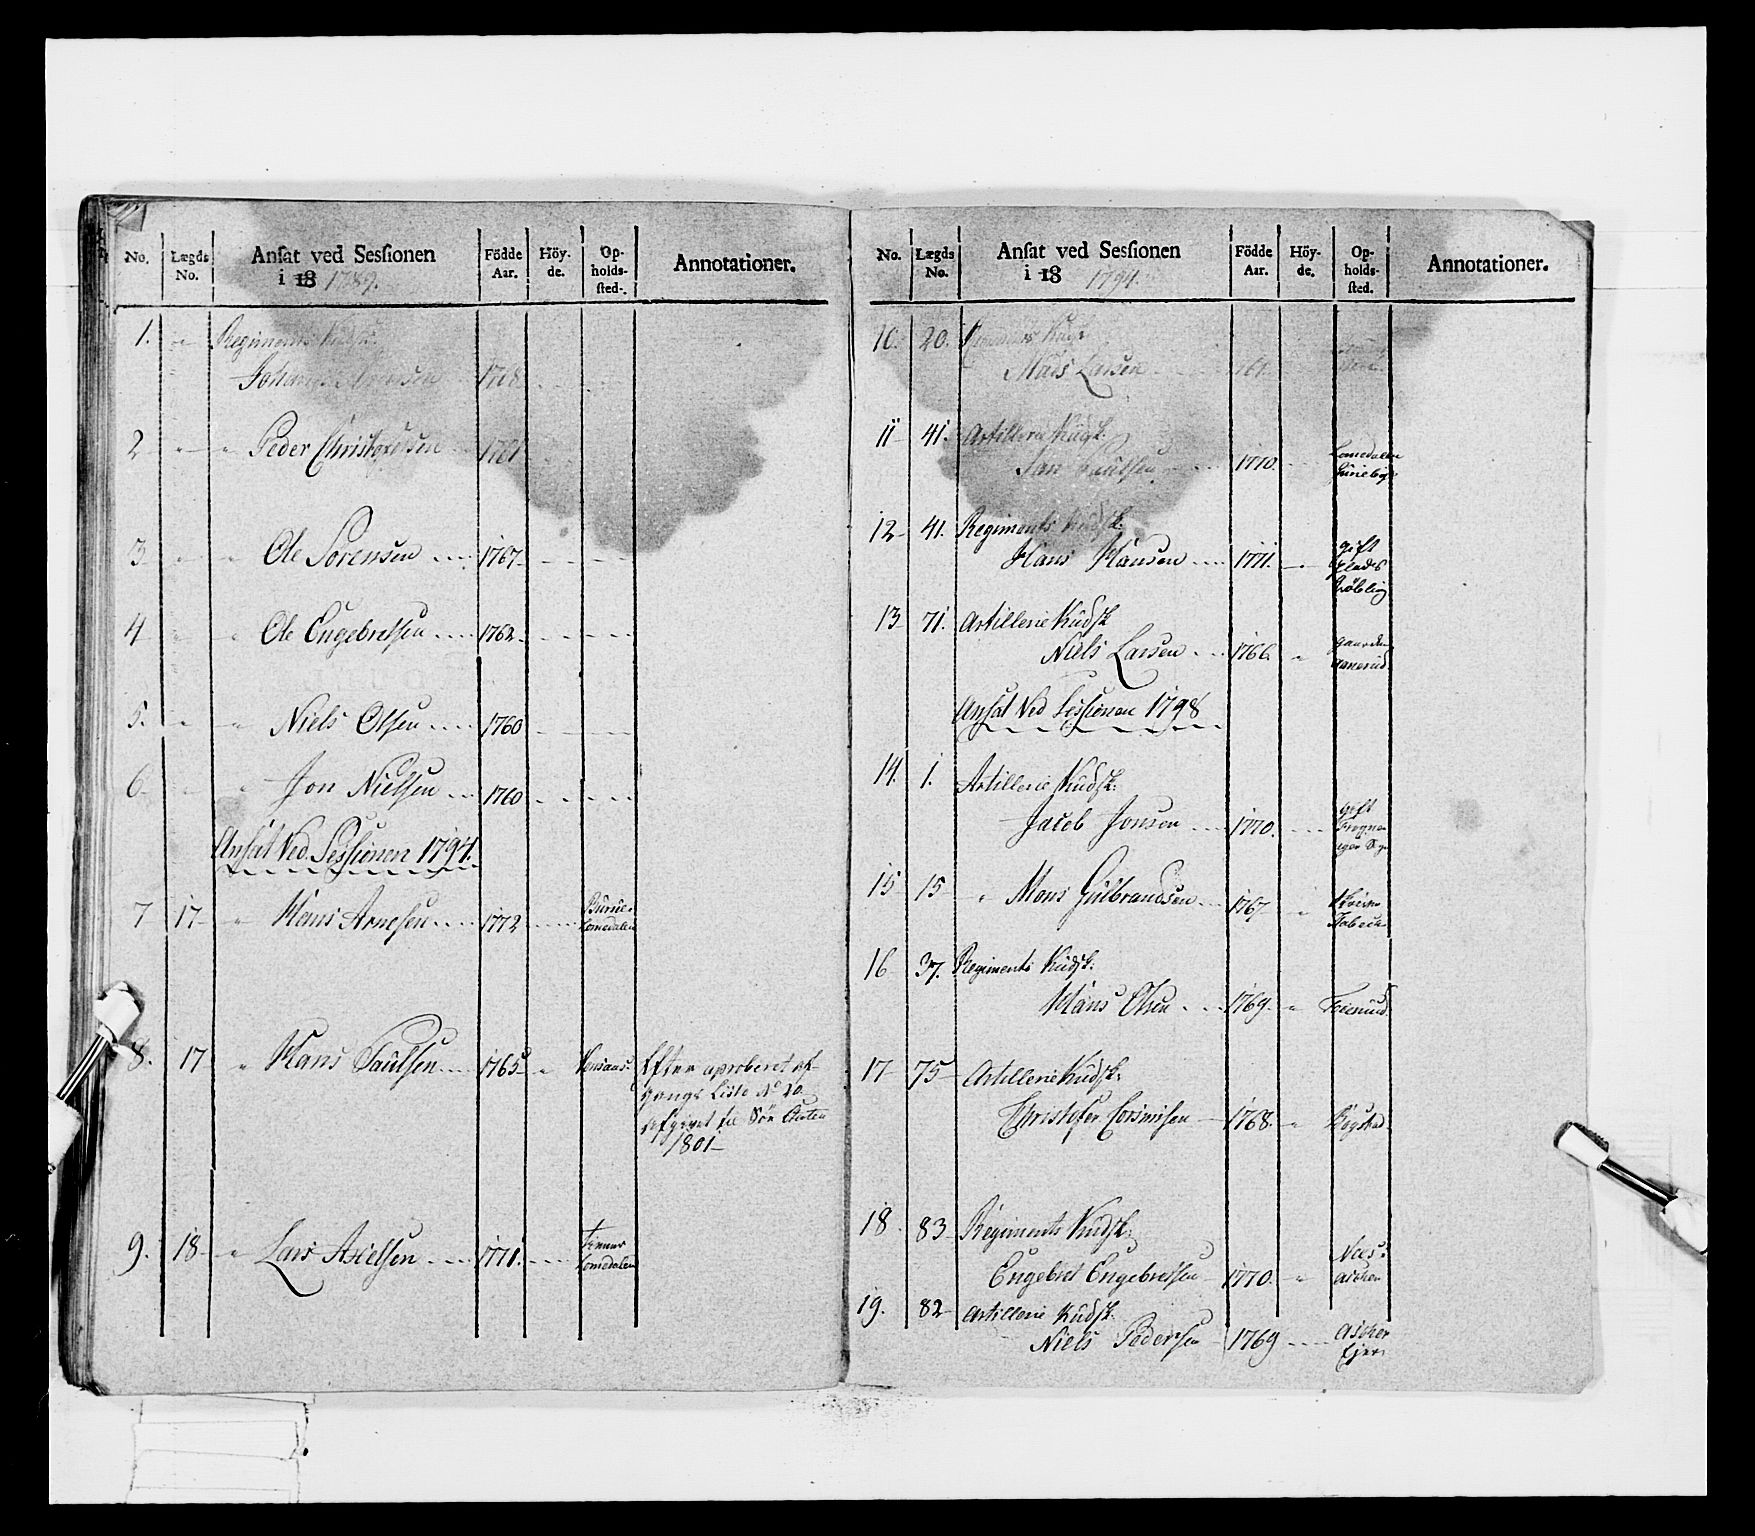 No. Lægds No. Ansat ved Sessionen i 18 1789. Födde Aar. Höy-de. Op-holds-sted. Annotationer.
1. " Regiments Kudsk:
1768
2 " " Peder Christophersen 1761
3 " " Ole Sörensen 1767
4 " " Ole Engebretsen 1762
5. " " Niels Olsen 1760
6. " " Jon Nielsen 1760
Ansat Ved Sessionen 1794.
7 17 " Hans Arnesen 1772 Burud Lomedalen
8. 17 " Hans Paulsen 1765 " Efter aproberet af-
gangs Liste No 20
afgivet til Sör
1801
9. 18 " Lars Axelsen 1771. Lomedalen
No. Lægds No. Ansat ved Sessionen i 18 1794. Födde Aar. Höy-de. Op-holds-sted. Annotationer.
10. 20. Kudsk
Mads Larsen
11 41. Artillerie Kudsk.
Jan Paulsen 1770. Lomedalen
12 41. Regiments Kudsk.
Hans Hansen 1771. gift
13 71. Artillerie Kudsk
Niels Larsen 1766. "
Ansat Ved Sessionen 1798
14. 1. Artillerie Kudsk:
Jacob Jonsen 1770. gift
Frogner
15 15 " Mons Gulbrandsen 1767 "
16 37. Regiments Kudsk:
Hans Olsen 1769. "
17 75 Artillerie Kudsk:
Christofer 1768. "
18. 83 Regiments Kudsk:
Engebret Engebretsen 1770. " Nees:
Ascher
19. 82 Artillerie Kudsk.
Niels Pedersen 1769 Ascher